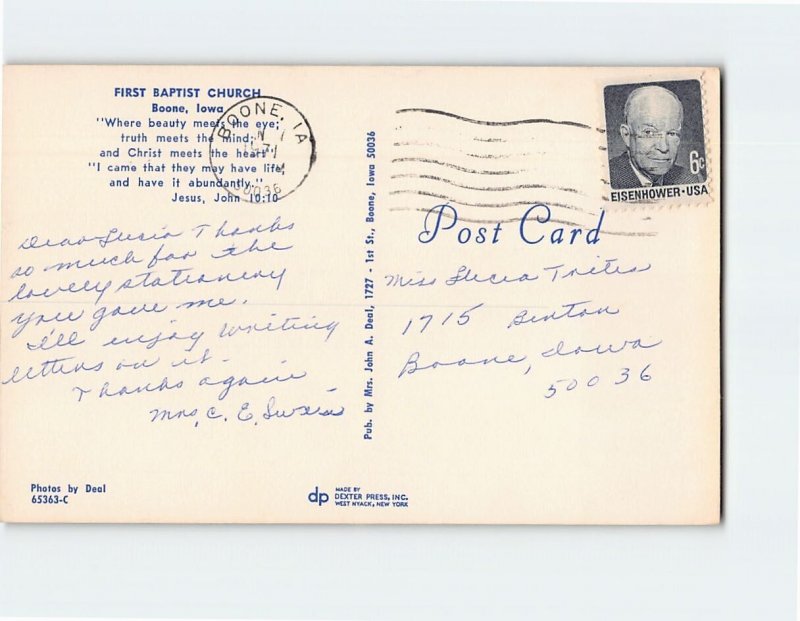 FIRST BAPTIST CHURCH
Boone, Iowa
"Where beauty meets the eye;
truth meets the mind;
and Christ meets the heart".
"I came that they may have life,
and have it abundantly."
Jesus, John 10:10
Dear Lucia Thanks
so much for the
lovely stationery
you gave me.
I'll enjoy writing
letters on it.
Thanks again
Mrs. C. E. Swain
Photos by Deal
65363-C
Pub. by Mrs. John A. Deal, 1727 - 1st St., Boone, Iowa 50036
dp
MADE BY
DEXTER PRESS, INC.
WEST NYACK, NEW YORK
BOONE, IA
50036
6c
EISENHOWER·USA
Post Card
Miss Lucia Trites
1715 Benton
Boone, Iowa
50036